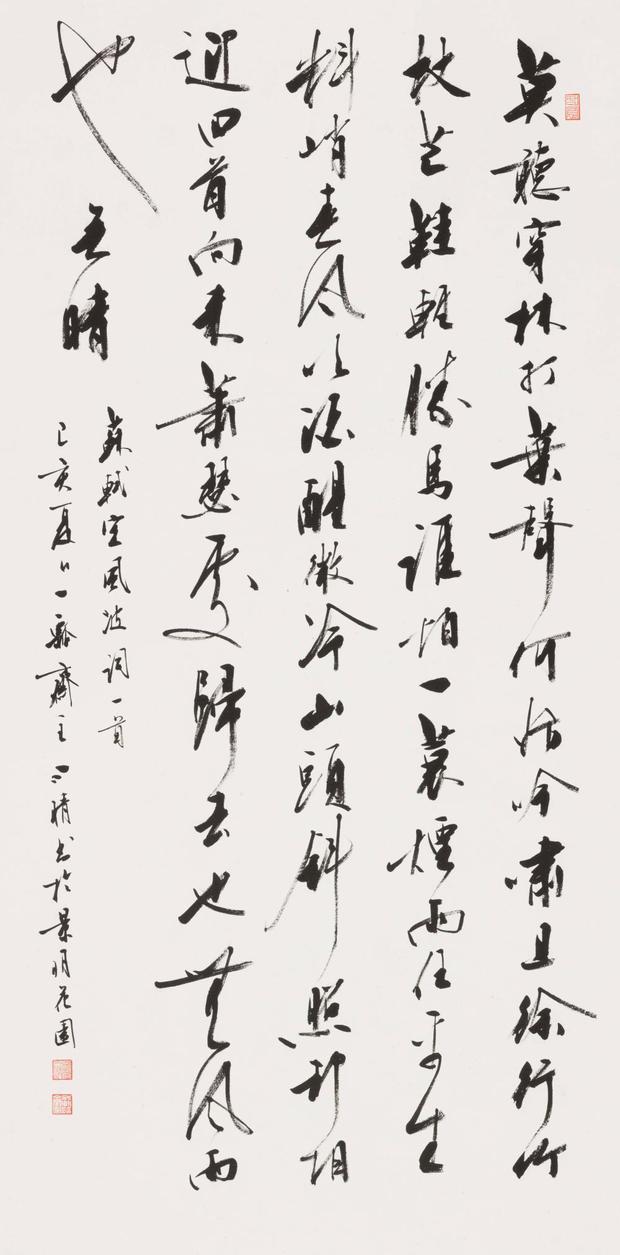 莫聽穿林打葉聲何妨吟嘯且徐行竹
杖芒鞋輕勝馬誰怕一蓑煙雨任平生
料峭春风吹酒醒微冷山頭斜照却相
迎回首向来蕭瑟處歸去也無风雨
也无晴
蘇軾定風波词一首
己亥夏日一豁齋主晴书於景明花園